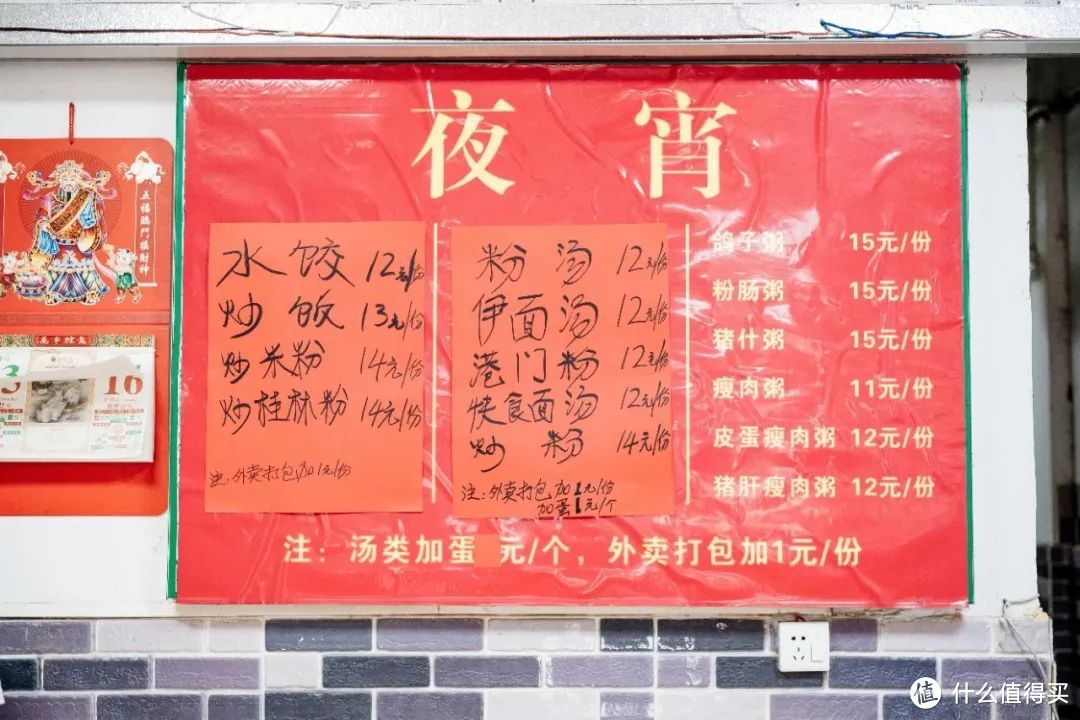 夜宵
水饺 12元/份
炒饭 13元/份
炒米粉 14元/份
炒桂林粉 14元/份
注:外卖打包加1元/份
粉汤 12元/份
伊面汤 12元/份
港门粉 12元/份
快食面汤 12元/份
炒粉 14元/份
注:外卖打包加1元/份
加蛋1元/个
鸽子粥 15元/份
粉肠粥 15元/份
猪什粥 15元/份
瘦肉粥 11元/份
皮蛋瘦肉粥 12元/份
猪肝瘦肉粥 12元/份
注:汤类加蛋 元/个,外卖打包加1元/份
五福临门接财神
16
值 什么值得买